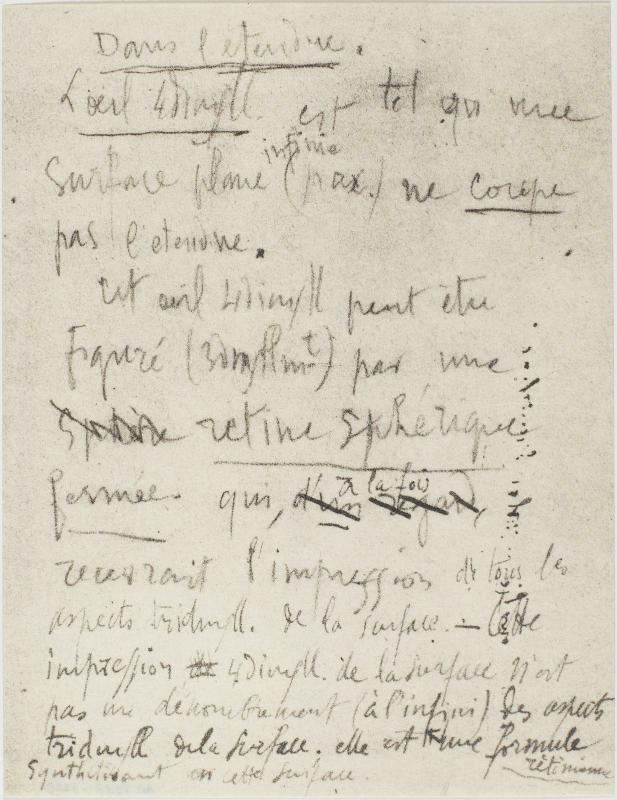 Dans l'etendue.
L'œil 4dimsll. est tel qu' une
infinie
surface plane (pax.) ne coupe
pas l'etendue.
cet œil 4dimsll peut être
figuré (3dimsllmt) par une
Sphère retine Sphérique
fermée. qui, d'un regard,
à la fois
recevrait l'impression de tous les
aspects tridimsll. de la surface. — Cette
impression 4dimsll. de la surface n'est
pas un dénombrement (à l'infini) des aspects
tridimsll de la surface. elle est une formule
rétinienne
Synthétisant cette surface.